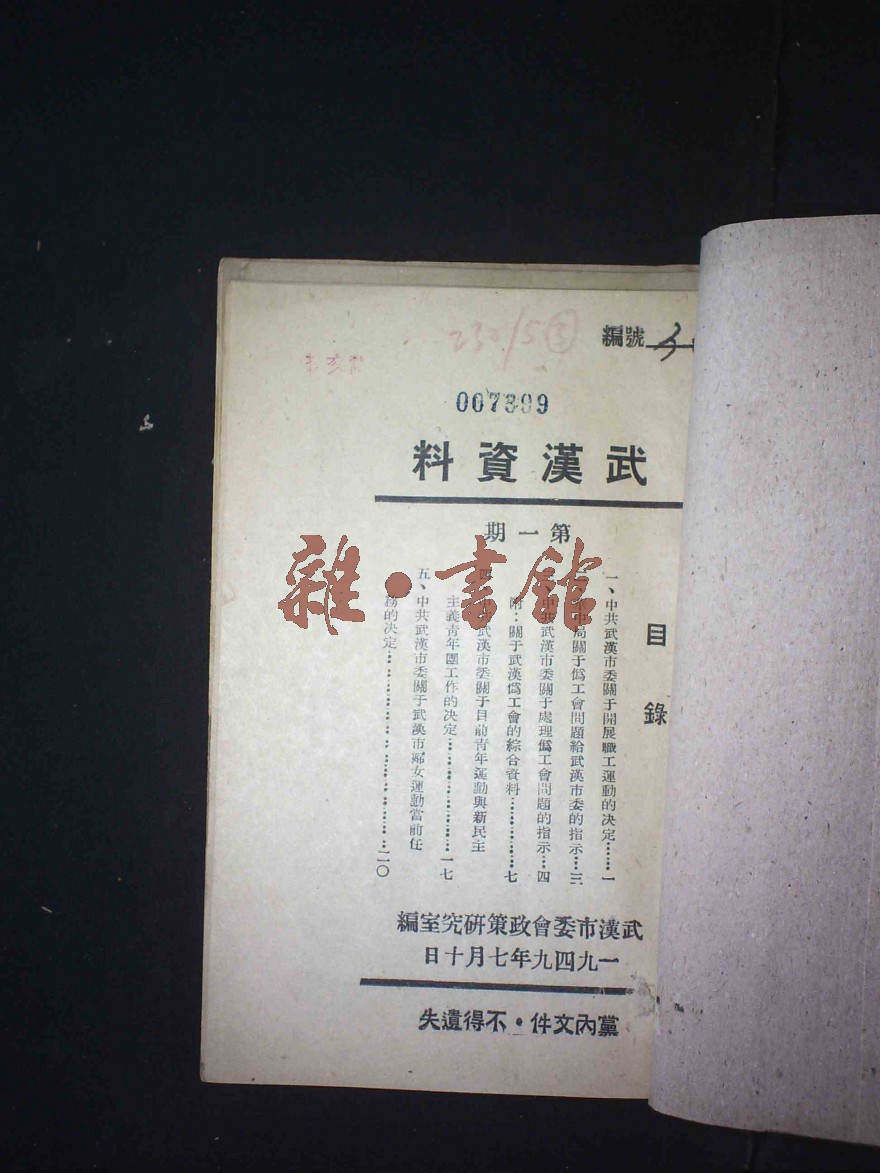 232/5③
編號
007399
武漢資料
第一期
目錄
一、中共武漢市委關于開展職工運動的决定……一
華中局關于僞工會問題給武漢市委的指示…三
中共武漢市委關于處理僞工會問題的指示…四
附：關于武漢僞工會的綜合資料………七
四、中共武漢市委關于目前青年運動與新民主
主義青年團工作的决定………一七
五、中共武漢市委關于武漢市婦女運動當前任
務的决定………二〇
武漢市委會政策研究室編
一九四九年七月十日
黨內文件・不得遺失
雜・書館